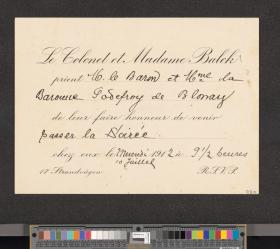 Le Colonel et Madame Balck
prient M. le Baron et Mme la
Baronne Godefroy de Blonay
de leur faire honneur de venir
passer la Soirée
chez eux le Mercredi 1912 à 9 1/2 heures
10 Juillet
17 Strandvägen R.S.V.P.